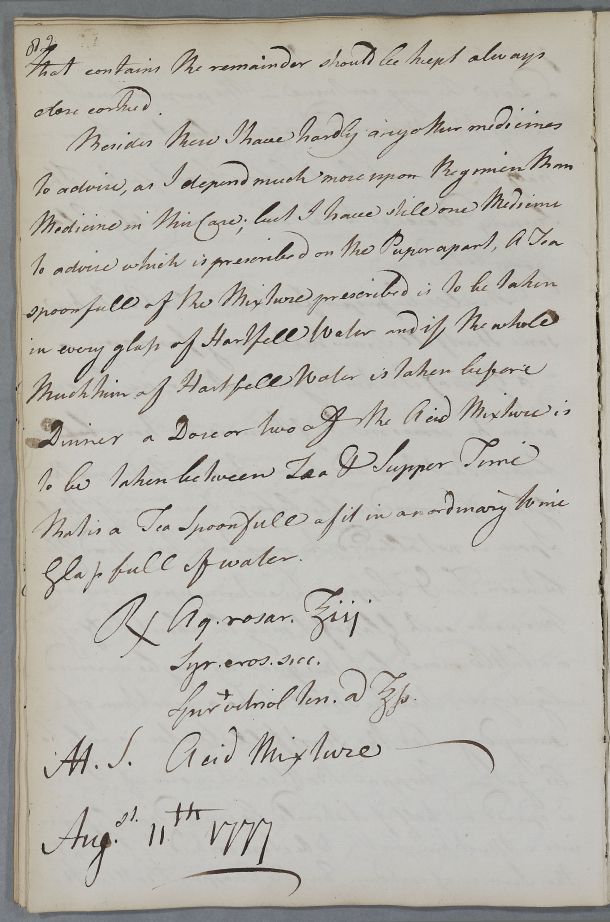 that contains the remainder should be kept always
close corked.
Besides these I have hardly any other medicines
to advise, as I depend much more upon Regimen than
Medicine in this Case; but I have still one Medicine
to advise which is prescribed on the Paper apart, A Tea
spoonfull of the Mixture prescribed is to be taken
in every glass of Hartfell Water and if the whole
Mutchkin of Hartfell Water is taken before
Dinner a Dose or two of the Acid Mixture is
to be taken between Tea & Supper Time
that is a Tea Spoonfull of it in an ordinary Wine
Glass full of water.
℞ Aq. rosar. ℥iij
Syr. e ros. sicc.
vitriol ten. a ℥ß.
M. S. Acid Mixture
Augst. 11th 1777